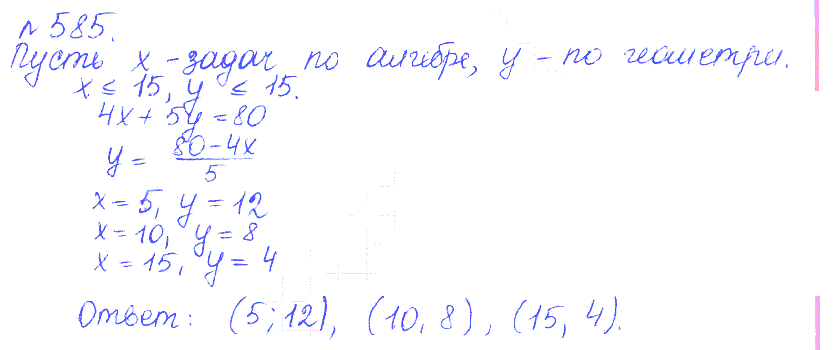 № 585.
Пусть x - задач по алгебре, y - по геометри.
x ≤ 15, y ≤ 15.
4x + 5y = 80
y = (80 - 4x)/5
x = 5, y = 12
x = 10, y = 8
x = 15, y = 4
Ответ: (5; 12), (10, 8), (15, 4).